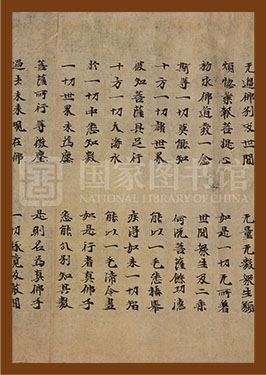 煩惱業報菩提心 如是一切无所著
一念 世間衆生及二乘
斯等一切莫能知 何況菩薩餘功德
十方一切諸世界 能以一毛悉稱舉
彼知菩薩具足行 疾得如來一切
十方一切大海水 能以一毛渧令盡
於一切中悉知數 如是行者真佛子
一切世界末為塵 悉能分別知其數
菩薩所行等微塵 是則名為真佛子
過去未來現在佛 一切緣覺及聲聞
国家图书馆
NATIONAL LIBRARY OF CHINA